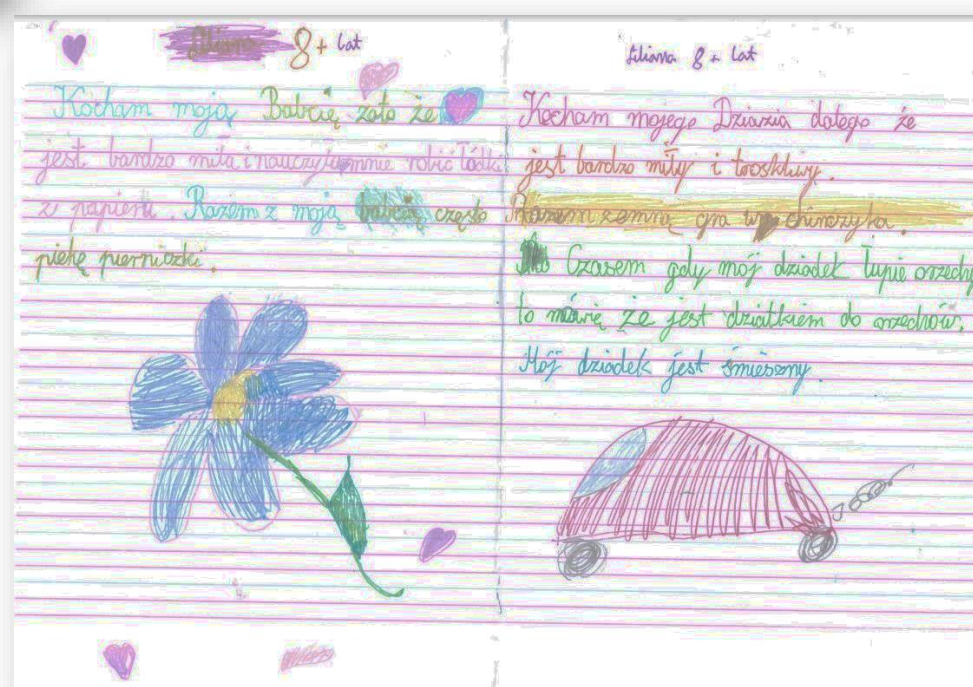 Liliana 8+ lat
Kocham moją Babcię zato że
jest bardzo miła i nauczyła mnie robić łódki
z papieru. Razem z moją babcią często
piekę pierniczki.
Liliana 8+ lat
Kocham mojego Dziazia datego że
jest bardzo miły i troskliwy.
Razem zemną gra w chinczyka.
Czasem gdy mój dziadek łupie orzechy
to mówię że jest dziatkiem do orzechów.
Mój dziadek jest śmieszny.